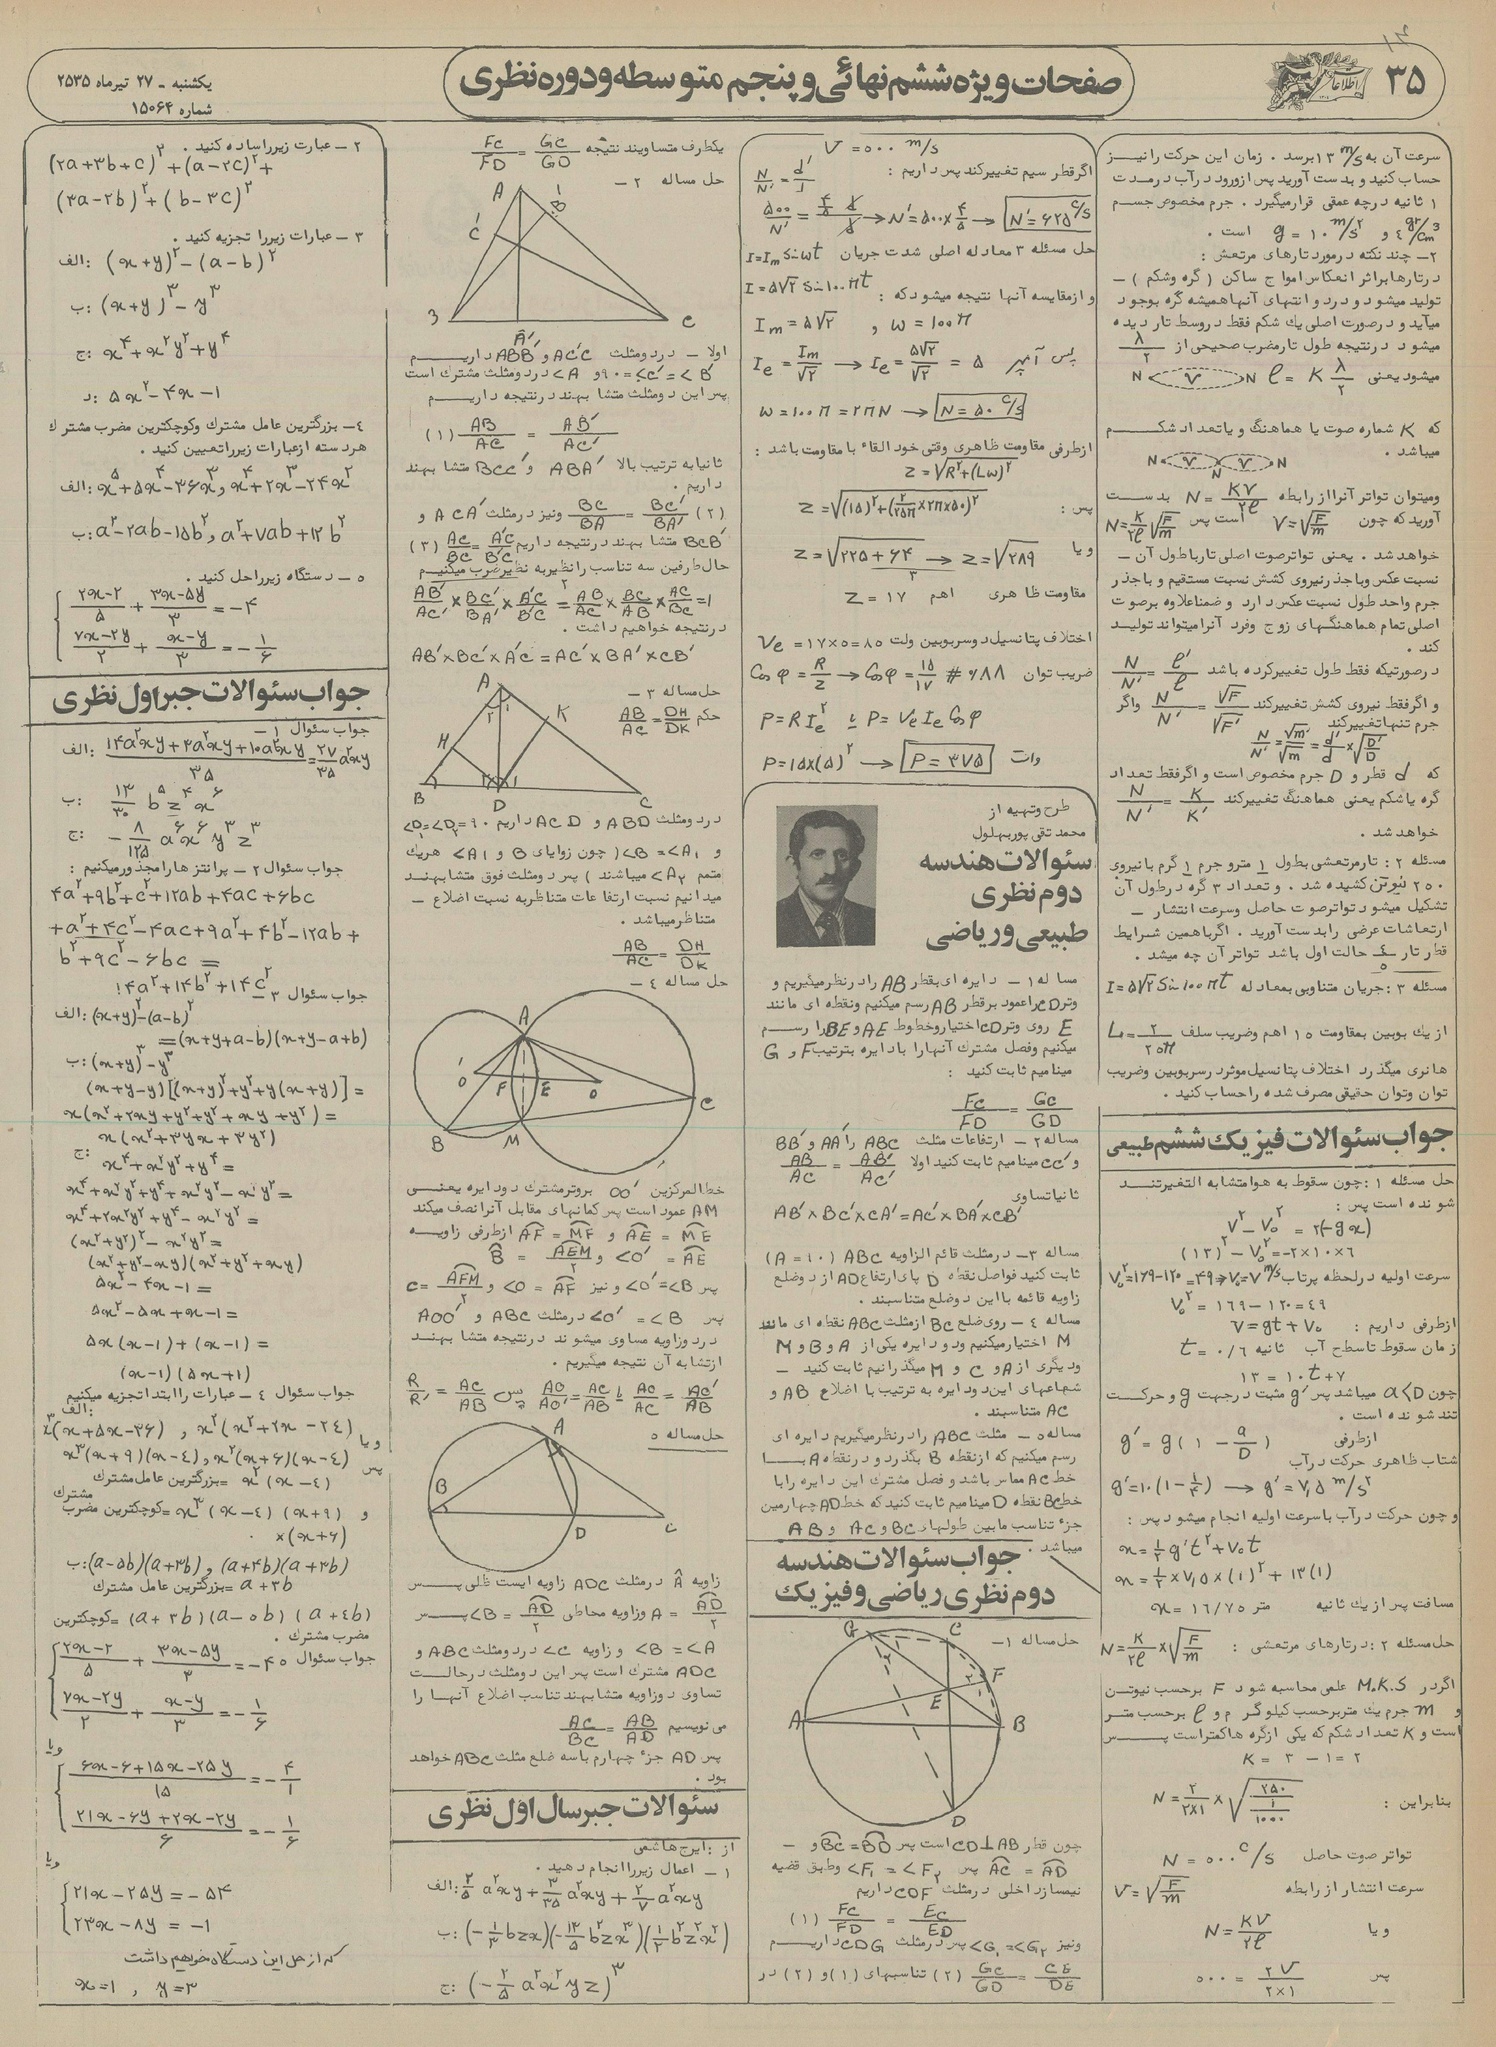 ۳۵
اطلاعات
صفحات ویژه ششم نهائی و پنجم متوسطه و دوره نظری
یکشنبه - ۲۷ تیرماه ۲۵۳۵
شماره ۱۵۰۶۴
سرعت آن به ۱۳ m/s برسد . زمان این حرکت را نیز
حساب کنید و بدست آورید پس از ورود در آب در مدت
۱ ثانیه در چه عمقی قرار میگیرد . جرم مخصوص جسم
۴ gr/cm³ و g = ۱۰ m/s² است .
۲- چند نکته در مورد تارهای مرتعش :
در تارها بر اثر انعکاس امواج ساکن ( گره و شکم ) -
تولید میشود و در دو انتهای آنها همیشه گره بوجود
میآید و در صورت اصلی یك شکم فقط در وسط تار دیده
میشود در نتیجه طول تار مضرب صحیحی از λ/۲
میشود یعنی l = K λ/۲ N V N
که K شماره صوت یا هماهنگ و یا تعداد شکم
میباشد .
N V N V N
ومیتوان تواتر آنرا از رابطه N = KV/۲l بدست
آورید که چون V = √F/m است پس N = K/۲l √F/m
خواهد شد . یعنی تواتر صوت اصلی تار با طول آن -
نسبت عکس و با جذر نیروی کشش نسبت مستقیم و با جذر
جرم واحد طول نسبت عکس دارد و ضمنا علاوه بر صوت
اصلی تمام هماهنگهای زوج و فرد آنرا میتواند تولید
کند .
در صورتیکه فقط طول تغییر کرده باشد N/N' = l'/l
و اگر فقط نیروی کشش تغییر کند N/N' = √F/√F' واگر
جرم تنها تغییر کند
N/N' = √m'/√m = d'/d × √D'/D
که d قطر و D جرم مخصوص است و اگر فقط تعداد
گره یا شکم یعنی هماهنگ تغییر کند N/N' = K/K'
خواهد شد .
مسئله ۲ : تار مرتعشی بطول ۱ متر و جرم ۱ گرم با نیروی
۲۵۰ نیوتن کشیده شد . و تعداد ۳ گره در طول آن
تشکیل میشود تواتر صوت حاصل و سرعت انتشار -
ارتعاشات عرضی را بدست آورید . اگر با همین شرایط
قطر تار ۴/۵ حالت اول باشد تواتر آن چه میشد .
مسئله ۳ : جریان متناوبی بمعادله I = ۵√۲ Sin ۱۰۰πt
از یك بوبین بمقاومت ۱۵ اهم وضریب سلف L = ۲/۲۵π
هانری میگذرد اختلاف پتانسیل موثر دو سر بوبین وضریب
توان و توان حقیقی مصرف شده را حساب کنید .
جواب سئوالات فیزیک ششم طبیعی
حل مسئله ۱ : چون سقوط به هوا متشابه التغییر تند
شونده است پس :
V² - V₀² = ۲(-gx)
(۱۳)² - V₀² = -۲×۱۰×۶
سرعت اولیه در لحظه پرتاب V₀ = ۷ m/s ⇒ ۴۹ = V₀² = ۱۶۹-۱۲۰
V₀² = ۱۶۹ - ۱۲۰ = ۴۹
از طرفی داریم : V = gt + V₀
زمان سقوط تا سطح آب ثانیه t = ۰/۶
۱۳ = ۱۰t + ۷
چون a<D میباشد پس g' مثبت در جهت g و حرکت
تند شونده است .
از طرفی g' = g (۱ - a/D)
شتاب ظاهری حرکت در آب
g' = ۱۰(۱ - ۱/۴) → g' = ۷٫۵ m/s²
و چون حرکت در آب با سرعت اولیه انجام میشود پس :
x = ½ g't² + V₀t
x = ½ × ۷٫۵ × (۱)² + ۱۳(۱)
مسافت پس از یك ثانیه متر x = ۱۶/۷۵
حل مسئله ۲ : در تارهای مرتعش : N = K/۲l × √F/m
اگر در M.K.S علمی محاسبه شود F بر حسب نیوتن
و m جرم یك متر بر حسب کیلوگرم و l بر حسب متر
است و K تعداد شکم که یکی از گره ها کمتر است پس
K = ۳ - ۱ = ۲
بنابراین : N = ۲/۲×۱ × √۲۵۰/(۱/۱۰۰۰)
تواتر صوت حاصل N = ۵۰۰ c/s
سرعت انتشار از رابطه V = √F/m
و یا N = KV/۲l
پس ۵۰۰ = ۲V/۲×۱
V = ۵۰۰ m/s
اگر قطر سیم تغییر کند پس داریم : N/N' = d'/d
۵۰۰/N' = ۴/۵ d/d → N' = ۵۰۰×۵/۴ → N' = ۶۲۵ c/s
حل مسئله ۳ معادله اصلی شدت جریان I = Im Sin ωt
و از مقایسه آنها نتیجه میشود که : I = ۵√۲ Sin ۱۰۰πt
Im = ۵√۲ , ω = ۱۰۰π
پس آمپر Ie = Im/√۲ → Ie = ۵√۲/√۲ = ۵
ω = ۱۰۰π = ۲πN → N = ۵۰ c/s
از طرفی مقاومت ظاهری وقتی خود القاء با مقاومت باشد :
Z = √R² + (Lω)²
پس : Z = √(۱۵)² + (۲/۲۵π × ۲π × ۵۰)²
و یا Z = √۲۲۵ + ۶۴ → Z = √۲۸۹
مقاومت ظاهری اهم Z = ۱۷
اختلاف پتانسیل دو سر بوبین ولت Ve = ۱۷×۵ = ۸۵
ضریب توان Cosφ = R/Z → Cosφ = ۱۵/۱۷ # ۰٫۸۸
P = R Ie² یا P = Ve Ie Cosφ
وات P = ۱۵×(۵)² → P = ۳۷۵
طرح و تهیه از
محمد تقی پور بهلول
سئوالات هندسه
دوم نظری
طبیعی و ریاضی
مساله ۱ - دایره ای بقطر AB را در نظر میگیریم و
وتر CD را عمود بر قطر AB رسم میکنیم و نقطه ای مانند
E روی وتر CD اختیار و خطوط AE و BE را رسم
میکنیم وفصل مشترك آنها را با دایره بترتیب F و G
مینامیم ثابت کنید :
FC/FD = GC/GD
مساله ۲ - ارتفاعات مثلث ABC را AA' و BB'
و CC' مینامیم ثابت کنید اولا AB/AC = AB'/AC'
ثانیا تساوی
AB'×BC'×CA' = AC'×BA'×CB'
مساله ۳- در مثلث قائم الزاویه ABC (A = ۹۰)
ثابت کنید فواصل نقطه D پای ارتفاع AD از دو ضلع
زاویه قائمه با این دو ضلع متناسبند .
مساله ٤ - روی ضلع BC از مثلث ABC نقطه ای مانند
M اختیار میکنیم و دو دایره یکی از A و B و M
و دیگری از A و C و M میگذرانیم ثابت کنید -
شعاعهای این دو دایره به ترتیب با اضلاع AB و
AC متناسبند .
مساله ۵- مثلث ABC را در نظر میگیریم دایره ای
رسم میکنیم که از نقطه B بگذرد و در نقطه A با
خط AC مماس باشد و فصل مشترك این دایره را با
خط BC نقطه D مینامیم ثابت کنید که خط AD چهارمین
جزء تناسب مابین طولهای BC و AC و AB
میباشد .
جواب سئوالات هندسه
دوم نظری ریاضی و فیزیک
حل مساله ۱-
G C F E A B D
چون قطر CD⊥AB است پس BC = BD و -
AC = AD پس <F₁ = <F₂ وطبق قضیه
نیمساز داخلی در مثلث CDF داریم
(۱) FC/FD = EC/ED
ونیز <G₁ = <G₂ پس در مثلث CDG داریم
(۲) GC/GD = CE/DE تناسبهای (۱) و (۲) در
یکطرف متساویند نتیجه FC/FD = GC/GD
حل مساله ۲ -
A B' C' B A' C
اولا - در دو مثلث AC'C و ABB' داریم
<B' = <C' = ۹۰ و <A در دو مثلث مشترك است
پس این دو مثلث متشابهند در نتیجه داریم
(۱) AB/AC = AB'/AC'
ثانیا به ترتیب بالا ABA' و BCC' متشابهند
داریم .
(۲) BC/BA = BC'/BA' ونیز در مثلث ACA' و
BCB' متشابهند در نتیجه داریم AC/BC = A'C/B'C (۳)
حال طرفین سه تناسب را نظیر به نظیر ضرب میکنیم
AB'/AC' × BC'/BA' × A'C/B'C = AB/AC × BC/AB × AC/BC = ۱
در نتیجه خواهیم داشت .
AB'×BC'×A'C = AC'×BA'×CB'
حل مساله ۳ -
حکم AB/AC = DH/DK
A K H B D C
در دو مثلث ABD و ACD داریم <D₁=<D₂=۹۰
و <B = <A₁ ( چون زوایای B و A₁ هریك
متمم <A₂ میباشند ) پس دو مثلث فوق متشابهند
میدانیم نسبت ارتفاعات متناظر به نسبت اضلاع -
متناظر میباشد .
AB/AC = DH/DK
حل مساله ٤ -
A O' F E O B M C
خط المرکزین OO' بر وتر مشترك دو دایره یعنی
AM عمود است پس کمانهای مقابل آنرا نصف میکند
AE = ME و AF = MF از طرفی زاویه
<O' = AE و B = AEM/۲
پس <O' = <B و نیز <O = AF و C = AFM/۲
پس <O' = <B در مثلث ABC و AOO'
در دو زاویه مساوی میشوند در نتیجه متشابهند
از تشابه آن نتیجه میگیریم .
حل مساله ۵
A B D C
زاویه A در مثلث ADC زاویه ایست ظلی پس
A = AD/۲ و زاویه محاطی <B = AD/۲ پس
<B = <A و زاویه <C در دو مثلث ABC و
ADC مشترك است پس این دو مثلث در حالت
تساوی دو زاویه متشابهند تناسب اضلاع آنها را
می نویسیم AC/BC = AB/AD
پس AD جزء چهارم با سه ضلع مثلث ABC خواهد
بود .
سئوالات جبر سال اول نظری
از : ایرج هاشمی
۱ - اعمال زیر را انجام دهید .
الف: ۲/۵ a²xy + ۳/۳۵ a²xy + ۲/۷ a²xy
ب: (-۱/۳ bzx)(-۱۳/۵ b²zx³)(۱/۲ b²z²x²)
ج: (-۲/۵ a²x²yz)³
۲ - عبارت زیر را ساده کنید .
(۲a+۳b+c)² + (a-۲c)² +
(۳a-۲b)² + (b-۳c)²
۳ - عبارات زیر را تجزیه کنید .
الف: (x+y)² - (a-b)²
ب: (x+y)³ - y³
ج: x⁴ + x²y² + y⁴
د: ۵x² - ۴x - ۱
٤ - بزرگترین عامل مشترك و کوچکترین مضرب مشترك
هر دسته از عبارات زیر را تعیین کنید .
الف: x⁵+۵x⁴-۳۶x³ , x⁴+۲x³-۲۴x²
ب: a²-۲ab-۱۵b² , a²+۷ab+۱۲b²
۵ - دستگاه زیر را حل کنید .
(۲x-۲)/۵ + (۳x-۵y)/۳ = -۴
(۷x-۲y)/۲ + (x-y)/۳ = -۱/۶
جواب سئوالات جبر اول نظری
جواب سئوال ۱ -
الف: (۱۴a²xy + ۳a²xy + ۱۰a²xy)/۳۵ = ۲۷/۳۵ a²xy
ب: ۱۳/۳۰ b⁵z⁴x⁶
ج: -۸/۱۲۵ a⁶x⁶y³z³
جواب سئوال ۲ - پرانتز ها را مجذور میکنیم :
۴a²+۹b²+c²+۱۲ab+۴ac+۶bc
+a²+۴c²-۴ac+۹a²+۴b²-۱۲ab+
b²+۹c²-۶bc =
۱۴a²+۱۴b²+۱۴c²
جواب سئوال ۳ -
الف: (x+y)²-(a-b)²
=(x+y+a-b)(x+y-a+b)
ب: (x+y)³-y³
=(x+y-y)[(x+y)²+y²+y(x+y)]
=x(x²+۲xy+y²+y²+xy+y²)
x(x²+۳yx+۳y²)
ج: x⁴+x²y²+y⁴=
x⁴+x²y²+y⁴+x²y²-x²y²=
x⁴+۲x²y²+y⁴-x²y²=
(x²+y²)²-x²y²=
(x²+y²-xy)(x²+y²+xy)
۵x²-۴x-۱=
۵x²-۵x+x-۱=
۵x(x-۱)+(x-۱)=
(x-۱)(۵x+۱)
جواب سئوال ٤ - عبارات را ابتدا تجزیه میکنیم
الف:
x³(x²+۵x-۳۶) , x²(x²+۲x-۲۴)
و یا x³(x+۹)(x-۴) , x²(x+۶)(x-۴)
پس x²(x-۴) =بزرگترین عامل مشترك
و x³(x-۴)(x+۹) =کوچکترین مضرب مشترك
×(x+۶) .
ب: (a-۵b)(a+۳b) , (a+۴b)(a+۳b)
a+۳b =بزرگترین عامل مشترك
(a+۳b)(a-۵b)(a+۴b) =کوچکترین
مضرب مشترك .
جواب سئوال ۵ (۲x-۲)/۵ + (۳x-۵y)/۳ = -۴
(۷x-۲y)/۲ + (x-y)/۳ = -۱/۶
ویا
(۶x-۶+۱۵x-۲۵y)/۱۵ = -۴/۱
(۲۱x-۶y+۲x-۲y)/۶ = -۱/۶
ویا
۲۱x-۲۵y = -۵۴
۲۳x-۸y = -۱
که از حل این دستگاه خواهیم داشت
x=۱ , y=۳